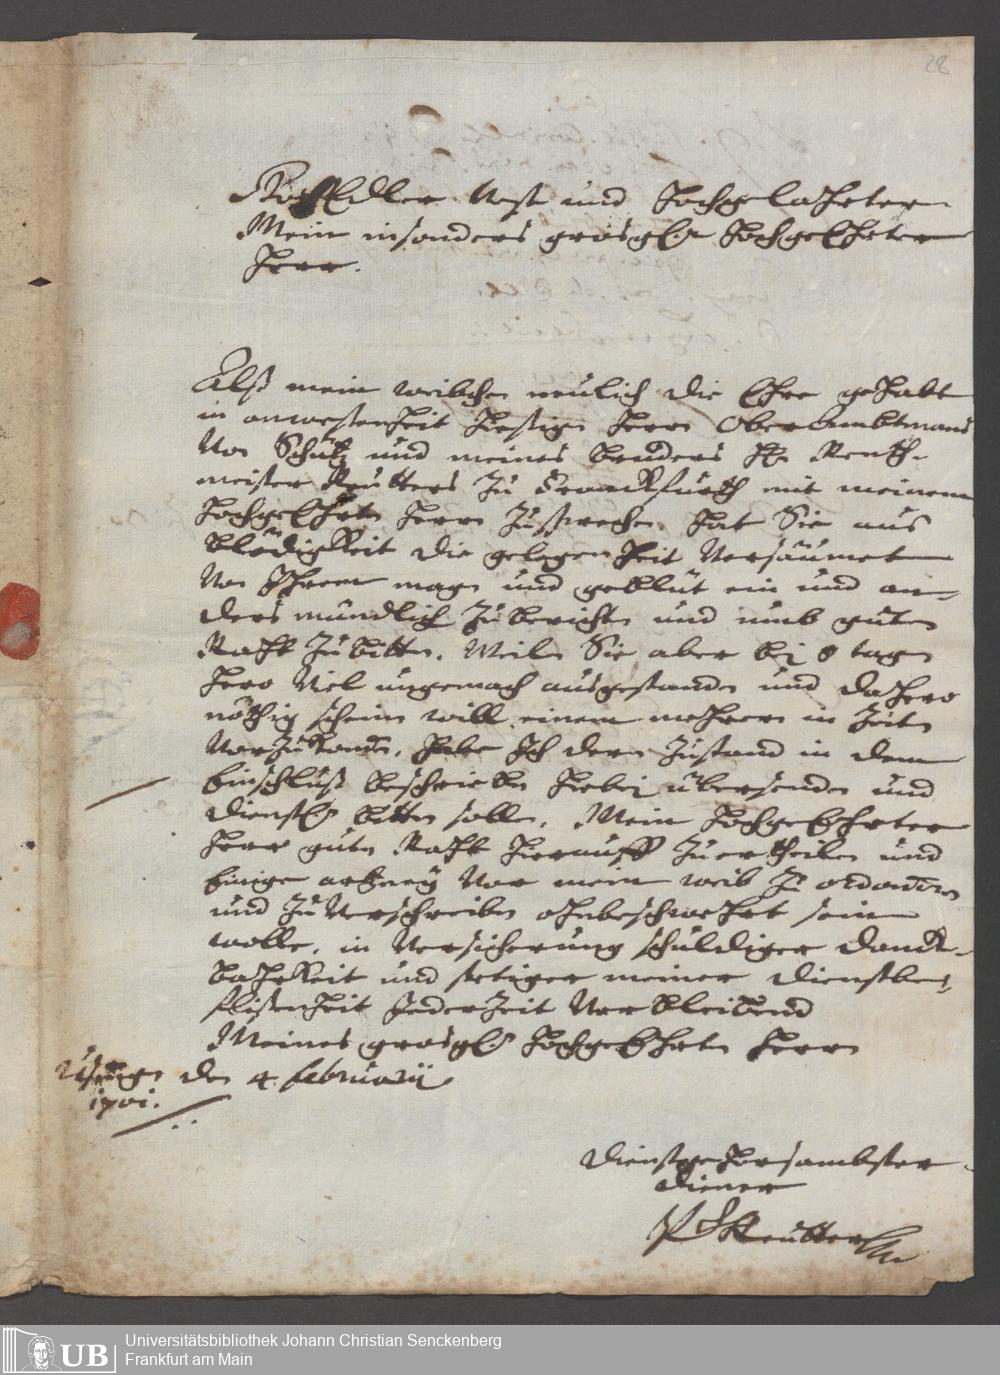 28
HochEdler Vest und Hochgelahrter
Mein insonders grosgl. HochgeEhrter
Herr.
Alß mein weibchen neulich die Ehre gehabt
in anwesenheit hiesigen Herrn OberAmbtmans
Von Schütz und meines bruders H. Renth-
meister Reutters zu Franckfurth mit meinem
HochgeEhrten Herrn zusprechen, hat Sie aus
blödigkeit die gelegenheit Versäumet
Von Ihrem magen und geblüt ein und an-
ders mündlich zuberichten und umb guten
Raht zubitten. Weilen Sie aber bey 8 tagen
hero Viel ungemach ausgestanden und dahero
nöthig scheinen will einem mehrern in Zeiten
Vorzukommen, Habe Ich dero Zustand in dem
Einschluß beschrieben hiebey übersenden und
dienstl. bitten sollen, Mein HochgeEhrter
Herr guten Raht hierauff zuertheilen und
Einige artzney Vor mein weib zu ordoniren
und zuVerschreiben ohnbeschwehrt sein
wolle, in Versicherung schuldiger danck-
bahrkeit und stetiger meiner dienstbe-
flißenheit JederZeit Verbleibend
Meines grosgl. HochgeEhrten Herrn
Usingen den 4. Februarii
1701.
Dienstgehorsambster
Diener
Reutter
UB
Universitätsbibliothek Johann Christian Senckenberg
Frankfurt am Main